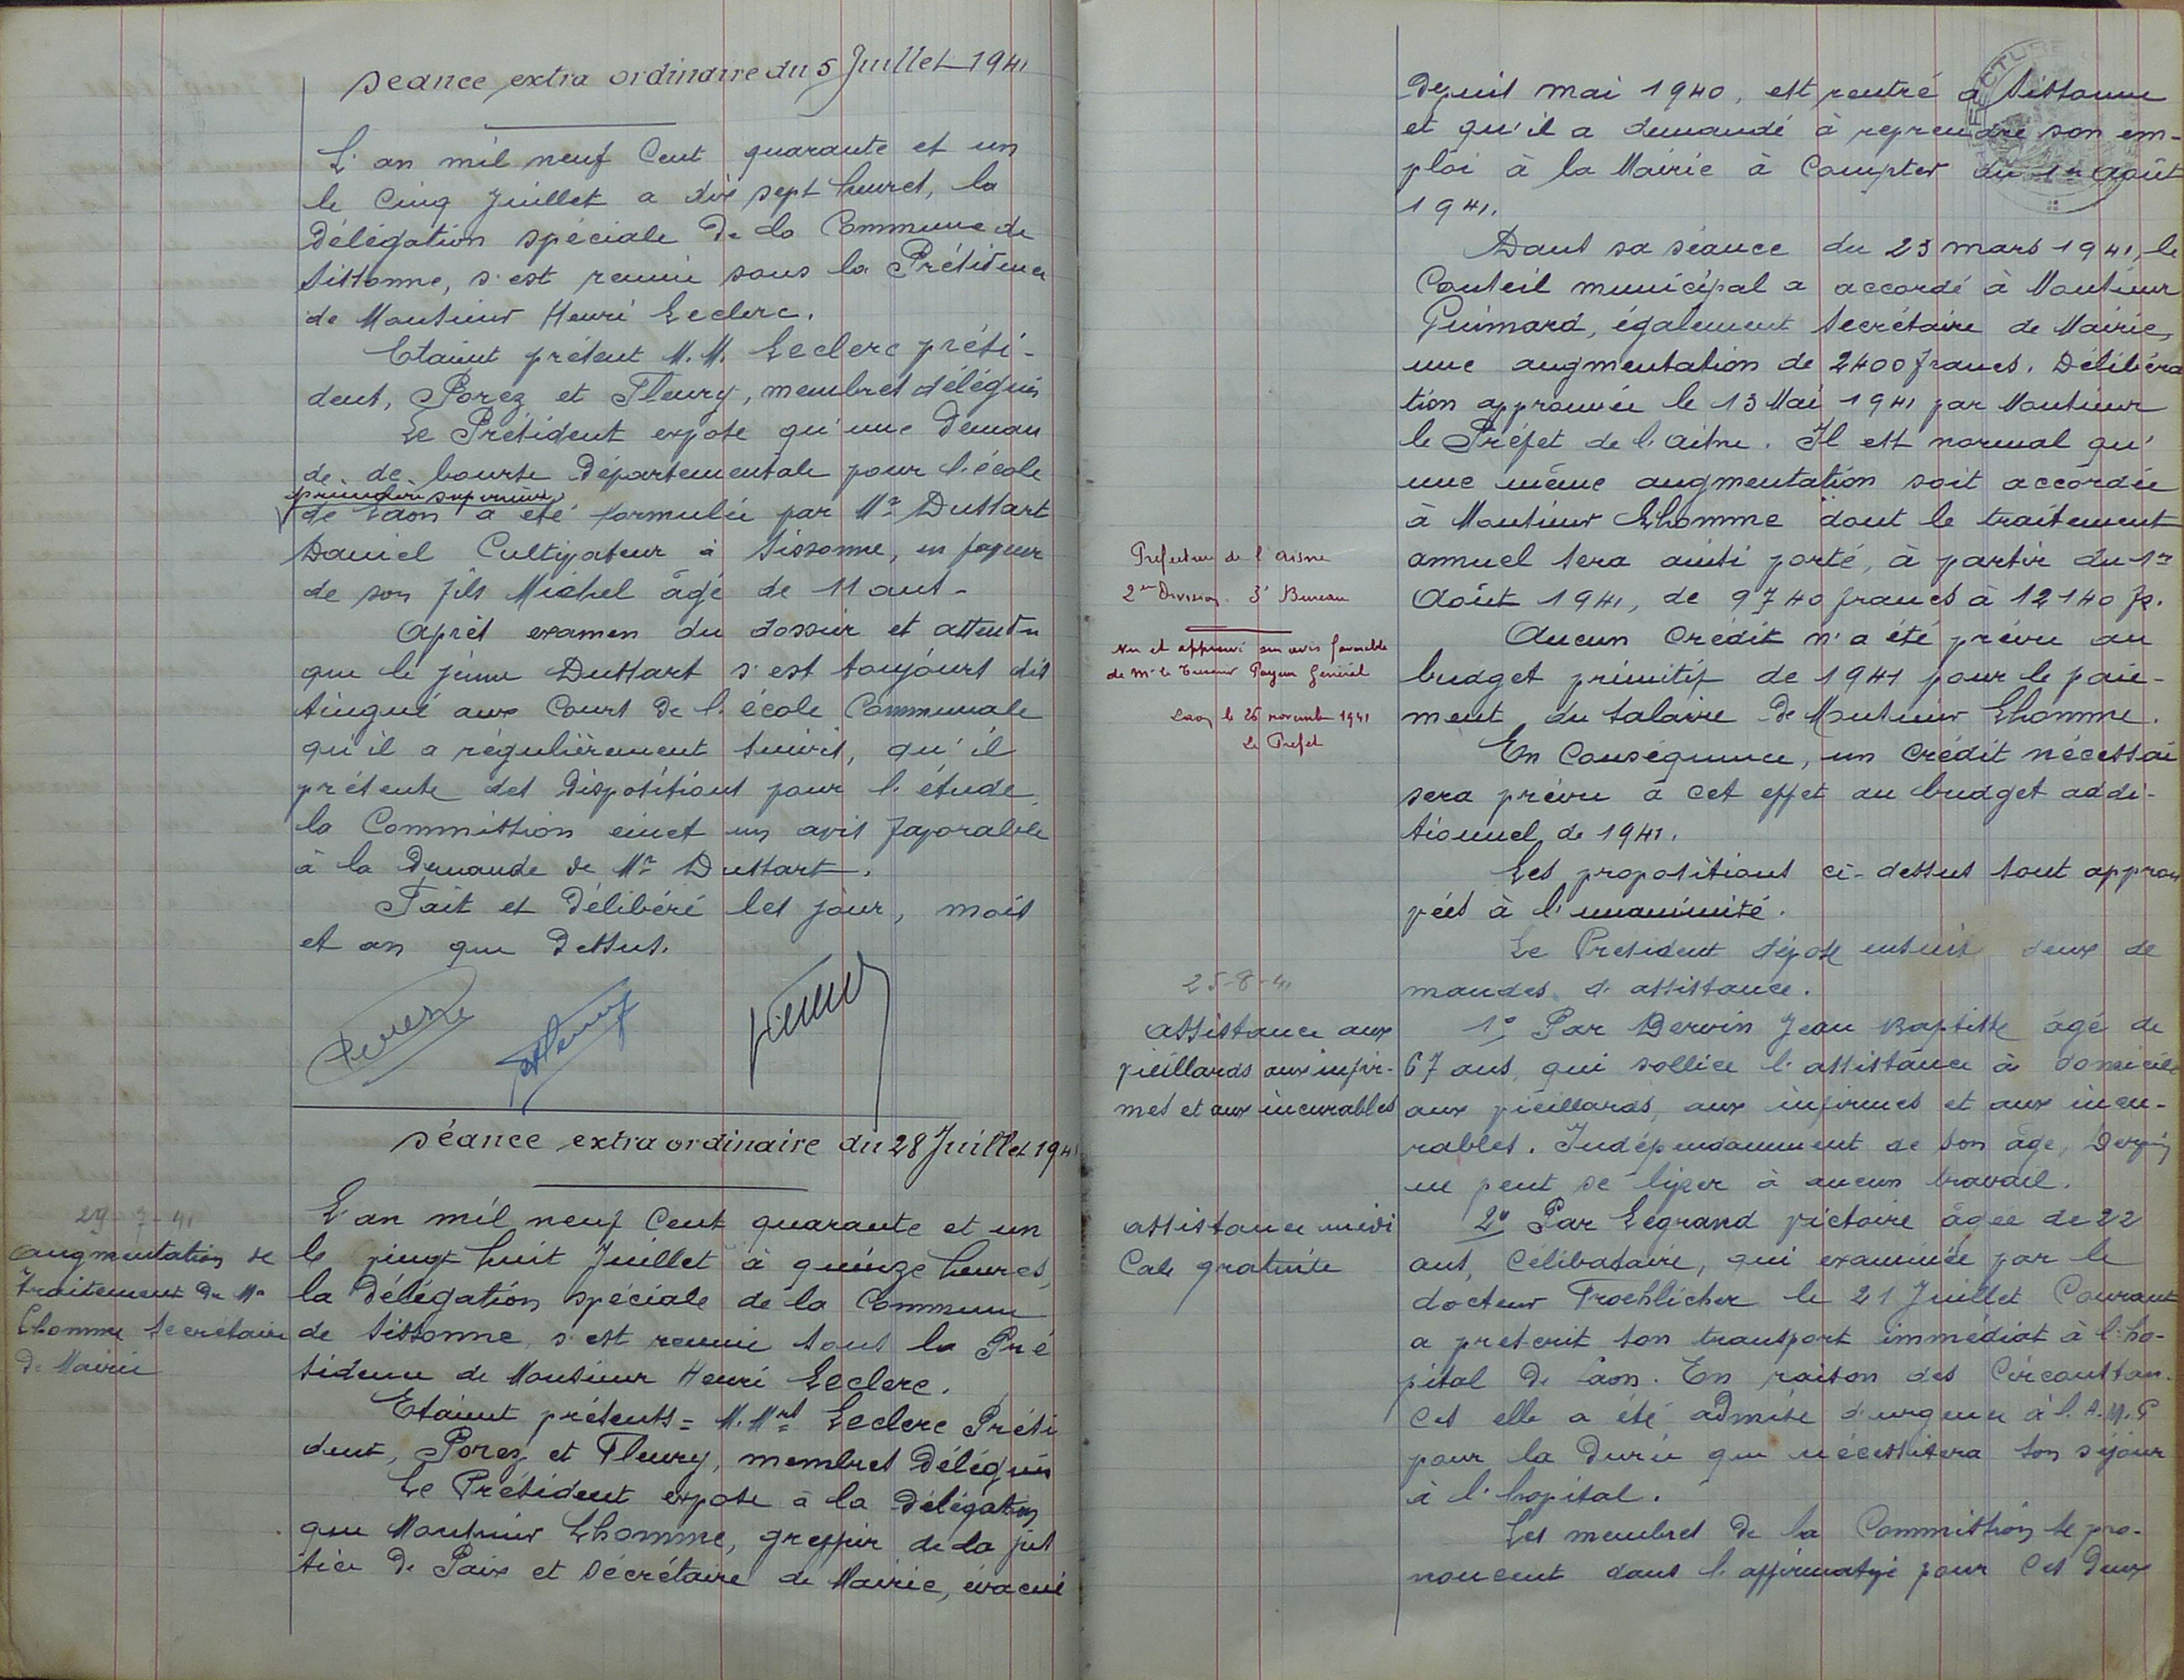 Seance extra ordinaire du 5 Juillet 1941
L'an mil neuf Cent quarante et un
le Cinq Juillet a dix sept heures, la
Délégation spéciale de la Commune de
Sissonne, s'est reunie sous la Présidence
de Monsieur Henri Leclerc.
Etaient présent M.M. Leclerc prési-
dent, Porez et Fleury, membres délégués
Le Président expose qu'une Deman
de de bourse Départementale pour l'école
primaire supérieure
de Laon a été formulée par Mr Dussart
Daniel Cultivateur à Sissonne, en faveur
de son fils Michel âgé de 11 ans.
Après examen du dossier et attendu
que le jeune Dussart s'est toujours dis
tingué aux Cours de l'école Communale
qu'il a régulièrement suivis, qu'il
présente des Dispositions pour l'étude,
la Commission émet un avis favorable
à la Demande de Mr Dussart.
Fait et Délibéré les jour, mois
et an que Dessus.
Séance extra ordinaire du 28 Juillet 1941
29-7-41
Augmentation de
traitement de Mr
Lhomme Secrétaire
de Mairie
L'an mil neuf Cent quarante et un
le vingt huit Juillet à quinze heures,
la Délégation spéciale de la Commune
de Sissonne, s'est reunie sous la Pré
sidence de Monsieur Henri Leclerc.
Etaient présents = M.Mrs Leclerc Prési
dent, Porez et Fleury, membres Délégués
Le Président expose à la Délégation
que Monsieur Lhomme, greffier de la jus
tice de Paix et Sécrétaire de Mairie, évacué
Depuis mai 1940, est rentré à Sissonne
et qu'il a demandé à reprendre son em-
ploi à la Mairie à Compter du 1er Août
1941.
Dans sa séance du 23 mars 1941, le
Conseil municipal a accordé à Monsieur
Guimard, également Secrétaire de Mairie,
une augmentation de 2400 francs. Délibéra
tion approuvée le 13 Mai 1941 par Monsieur
le Préfet de l'Aisne. Il est normal qu'
une même augmentation soit accordée
à Monsieur Lhomme dont le traitement
annuel sera ainsi porté, à partir du 1er
Août 1941, de 9740 francs à 12140 fs.
Aucun Crédit n'a été prévu au
budget primitif de 1941 pour le paie-
ment du Salaire de Monsieur Lhomme.
En Conséquence, un Crédit nécessai
sera prévu à cet effet au budget addi-
tionnel de 1941.
Les propositions ci-dessus sont approu
vées à l'unanimité.
Prefecture de l'Aisne
2eme Division 3e Bureau
Vu et approuvé sur avis favorable
de Mr le Tresorier Payeur Général
Laon le 26 novembre 1941
Le Prefet
Le President dépose ensuite deux de
mandes d'assistance.
25-8-41
Assistance aux
vieillards aux infir-
mes et aux incurables
1° Par Dervin Jean Baptiste âgé de
67 ans, qui sollice l'assistance à domicile
aux vieillards, aux infirmes et aux incu-
rables. Indépendamment de son âge, Dervin
ne peut se livrer à aucun travail.
Assistance médi
Cale gratuite
2° Par Legrand Victoire âgée de 22
ans, Célibataire, qui examinée par le
docteur Froehlicher le 21 Juillet Courant
a prescrit son transport immédiat à l'ho-
pital de Laon. En raison des Circonstan-
ces elle a été admise d'urgence à l'A.M.G
pour la Durée que nécessitera son séjour
à l'hopital.
Les membres de la Commission se pro-
noncent dans l'affirmative pour ces Deux